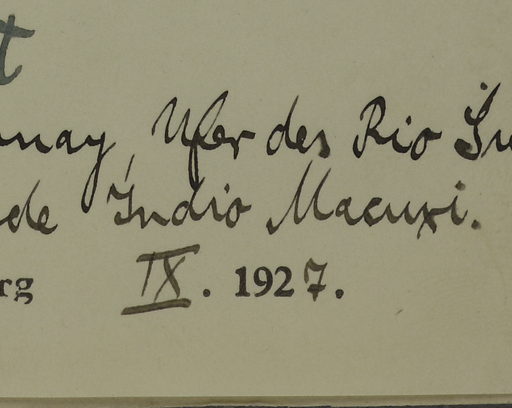 t
nay, Ufer des Rio Su
de Indio Macuxi.
rg IX. 1927.